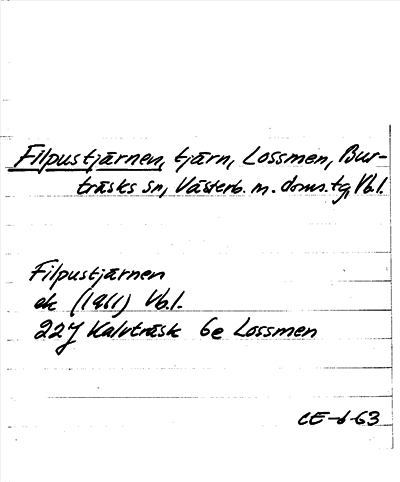 Filpustjärnen, tjärn, Lossmen, Bur-
träsks sn, Västerb. m. doms.tg, Vb.l.
Filpustjärnen
ek (1961) Vb.l.
22J Kalvträsk 6e Lossmen
CE-6-63